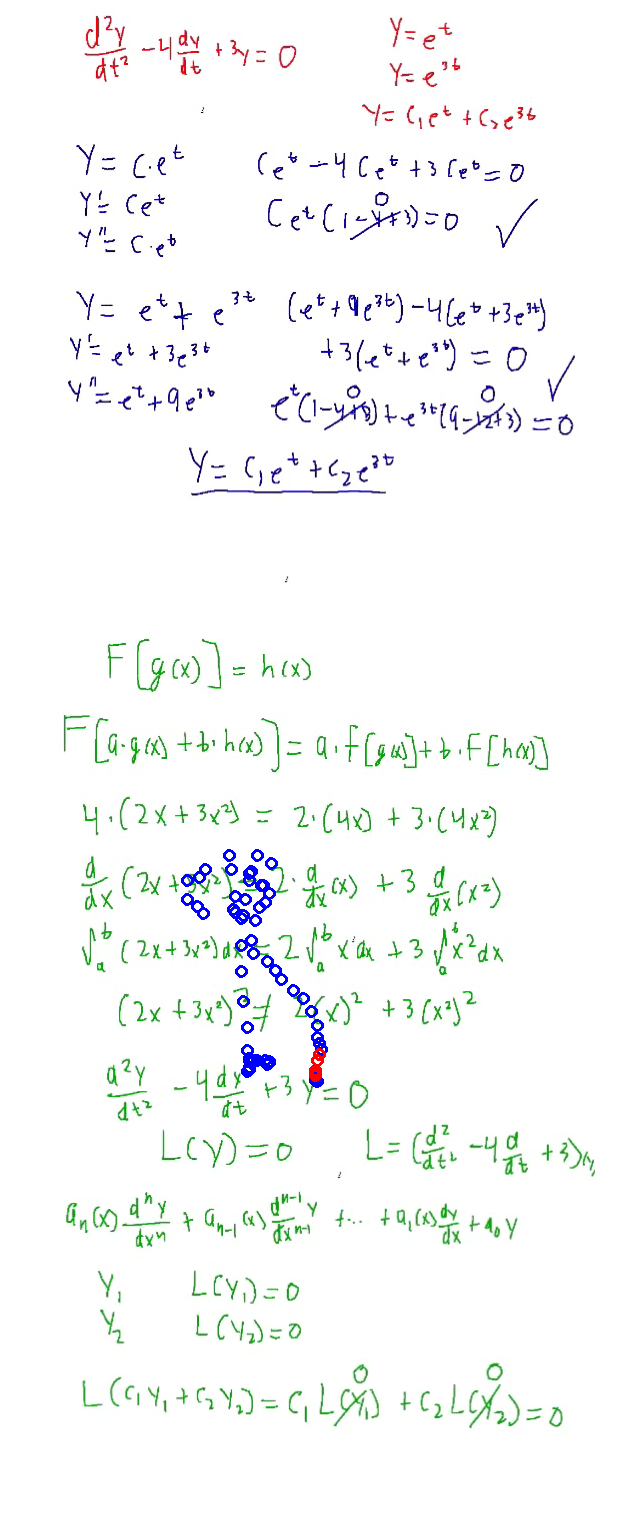 d²y/dt² - 4 dy/dt + 3y = 0
y = e^t
y = e^3t
y = c₁e^t + c₂e^3t
y = c·e^t
y' = ce^t
y'' = c·e^t
ce^t - 4ce^t + 3ce^t = 0
ce^t(1-4+3) = 0 ✓
0
y = e^t + e^3t
y' = e^t + 3e^3t
y'' = e^t + 9e^3t
(e^t + 9e^3t) - 4(e^t + 3e^3t)
+3(e^t + e^3t) = 0 ✓
0 0
e^t(1-4+3) + e^3t(9-12+3) = 0
y = c₁e^t + c₂e^3t
F[g(x)] = h(x)
F[a·g(x) + b·h(x)] = a·F[g(x)] + b·F[h(x)]
4·(2x + 3x²) = 2·(4x) + 3·(4x²)
d/dx (2x + 3x²) = 2·d/dx(x) + 3 d/dx(x²)
∫_a^b (2x + 3x²)dx = 2∫_a^b x dx + 3∫_a^b x² dx
(2x + 3x²)² ≠ 2(x)² + 3(x²)²
d²y/dt² - 4 dy/dt + 3y = 0
L(y) = 0 L = (d²/dt² - 4 d/dt + 3)
aₙ(x) dⁿy/dxⁿ + aₙ₋₁(x) dⁿ⁻¹y/dxⁿ⁻¹ + ... + a₁(x) dy/dx + a₀y
y₁ L(y₁) = 0
y₂ L(y₂) = 0
0 0
L(c₁y₁ + c₂y₂) = c₁L(y₁) + c₂L(y₂) = 0